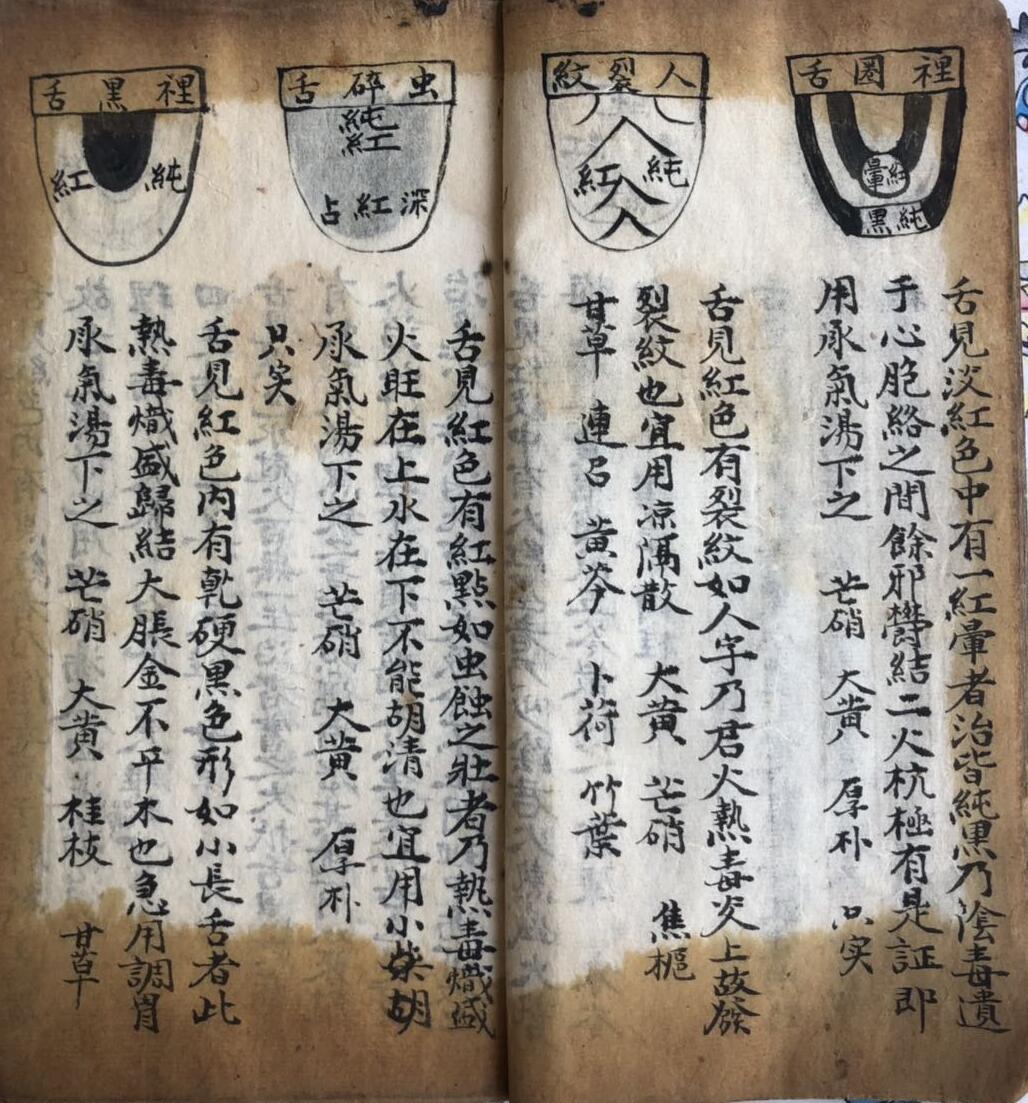 裡圈舌
紅暈
純黑
舌見淡紅色中有一紅暈者治皆純黒乃陰毒遺
于心胞絡之間餘邪欝結二火杭極有是証即
用承氣湯下之 芒硝 大黄 厚朴 只実
人裂紋
純紅
舌見紅色有裂紋如人字乃君火熱毒炎上故發
裂紋也宜用凉漏散 大黄 芒硝 焦梔
甘草 連召 黄芩 卜荷 竹葉
虫碎舌
純紅
深紅占
舌見紅色有紅點如虫蝕之壯者乃熱毒熾盛
火旺在上水在下不能胡清也宜用小柴胡
承氣湯下之 芒硝 大黄 厚朴
只实
裡黑舌
純紅
舌見紅色内有乹硬黒色形如小長舌者此
熱毒熾盛歸結大脹金不平木也急用調胃
承氣湯下之 芒硝 大黄 桂枝 甘草